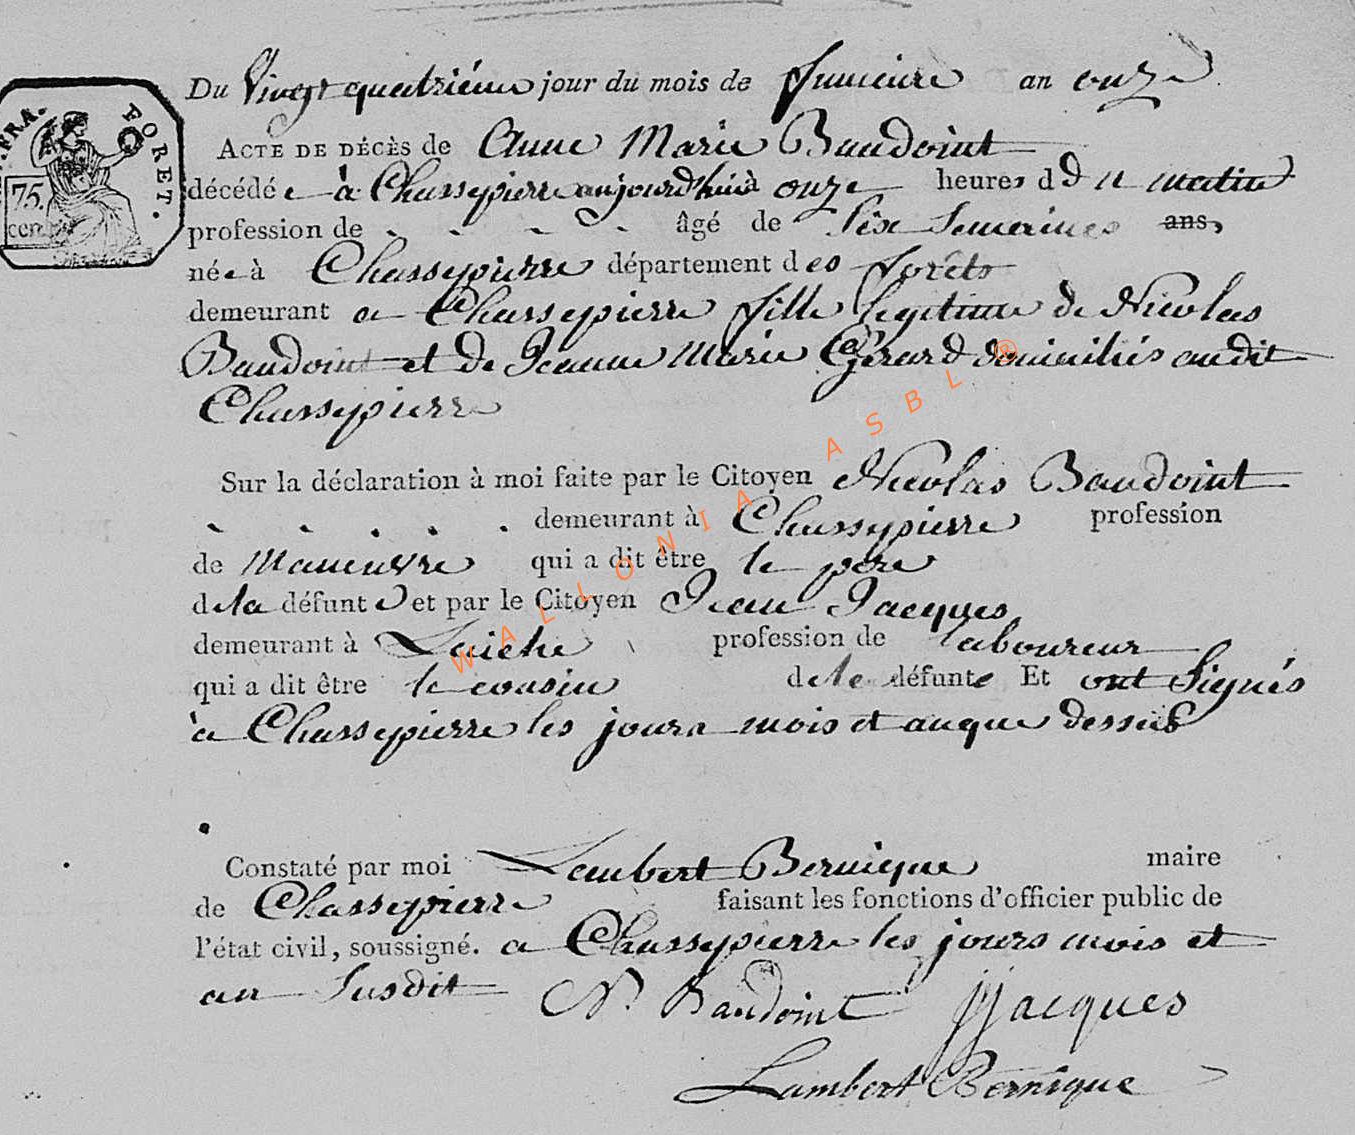 Du Vingt quatriéme jour du mois de frimaire an onze
ACTE DE DÉCÈS de Anne Marie Baudoint
décédée à Chassepierre aujourd'huià onze heures du matin
profession de - - - - âgé de Six Semaines ans,
née à Chassepierre département des forêts
demeurant a Chassepierre fille legitime de Nicolas
Baudoint et de Jeanne Marie Gérard domiciliés audit
Chassepierre
Sur la déclaration à moi faite par le Citoyen Nicolas Baudoint
- - - - - demeurant à Chassepierre profession
de Maneuvre qui a dit être le pere
dela défunte et par le Citoyen Jean Jacques
demeurant à Laiche profession de laboureur
qui a dit être le cousin dela défunte Et ont Signés
à Chassepierre les jours mois et an que dessus
Constaté par moi Lambert Bernique maire
de Chassepierre faisant les fonctions d'officier public de
l'état civil, soussigné. a Chassepierre les jours mois et
an Susdit N. Baudoint JJacques
Lambert Bernique
.FRA.
FORET.
75.
cen.
WALLONIA ASBL ®